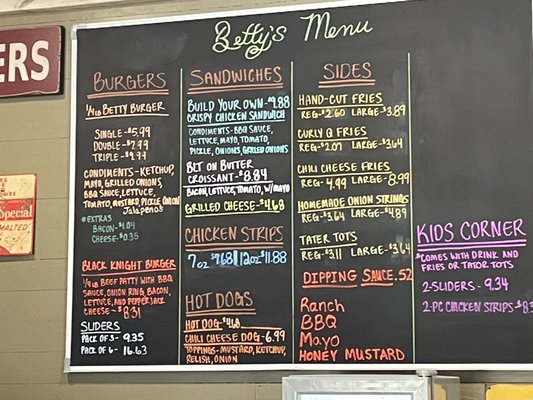 Betty's Menu
ERS
Special
BURGERS
1/4lb BETTY BURGER
SINGLE-$5.99
DOUBLE-$7.99
TRIPLE-$9.99
CONDIMENTS-KETCHUP,
MAYO, GRILLED ONIONS,
BBQ SAUCE, LETTUCE,
TOMATO, MUSTARD, PICKLE, ONION
Jalapeños
*EXTRAS
BACON-$1.04
CHEESE-$0.35
BLACK KNIGHT BURGER
1/4lb BEEF PATTY WITH BBQ
SAUCE, ONION RING, BACON,
LETTUCE, AND PEPPERJACK
CHEESE-$8.31
SLIDERS
PACK OF 3- 9.35
PACK OF 6- 16.63
SANDWICHES
BUILD YOUR OWN-$9.88
CRISPY CHICKEN SANDWICH
CONDIMENTS-BBQ SAUCE,
LETTUCE, MAYO, TOMATO,
PICKLE, ONIONS, GRILLED ONIONS
BLT ON BUTTER
CROISSANT-$8.84
BACON, LETTUCE, TOMATO, W/MAYO
GRILLED CHEESE-$4.68
CHICKEN STRIPS
7oz $9.68 | 12oz $11.88
HOT DOGS
HOT DOG-$4.68
CHILI CHEESE DOG-6.99
TOPPINGS-MUSTARD, KETCHUP,
RELISH, ONION
SIDES
HAND-CUT FRIES
REG-$2.60 LARGE-$3.89
CURLY Q FRIES
REG-$2.09 LARGE-$3.64
CHILI CHEESE FRIES
REG-4.99 LARGE-8.99
HOMEMADE ONION STRINGS
REG-$3.64 LARGE-$4.89
TATER TOTS
REG-$3.11 LARGE-$3.64
DIPPING SAUCE .52
Ranch
BBQ
Mayo
HONEY MUSTARD
KIDS CORNER
*COMES WITH DRINK AND
FRIES OR TATOR TOTS
2-SLIDERS- 9.34
2-PC CHICKEN STRIPS-$8.3